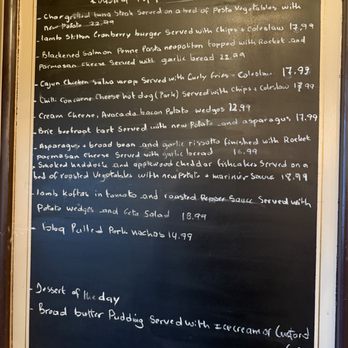 - Chargrilled tuna Steak Served on a bed of Pesto Vegetables with
new Potato 22.99
- lamb Stilton Cranberry burger Served with Chips + Coleslaw 17.99
- Blackened Salmon Penne Pasta neopoliton topped with Rocket and
parmasan Cheese Served with garlic bread 22.99
- Cajun Chicken Salsa wrap Served with Curly fries - Coleslaw 17.99
- Chilli Concarne Cheese hot dog (Pork) Served with Chips + Coleslaw 17.99
- Cream Cheese, Avocado, bacon Potato wedges 12.99
- Brie beetroot tart Served with new Potato and asparagus 17.99
- Asparagus + broad bean and garlic rissotto finished with Rocket
parmasan Cheese Served with garlic bread 16.99
- Smoked haddock and applewood cheddar fishcakes Served on a
bed of roasted Vegetables with new Potato + marinier Sauce 18.99
- lamb Koftas in tomato and roasted Pepper Sauce Served with
Potato wedges and feta Salad 18.99
- bbq Pulled Pork nachos 14.99
- Dessert of the day
- Bread butter Pudding Served with Icecream or Custard